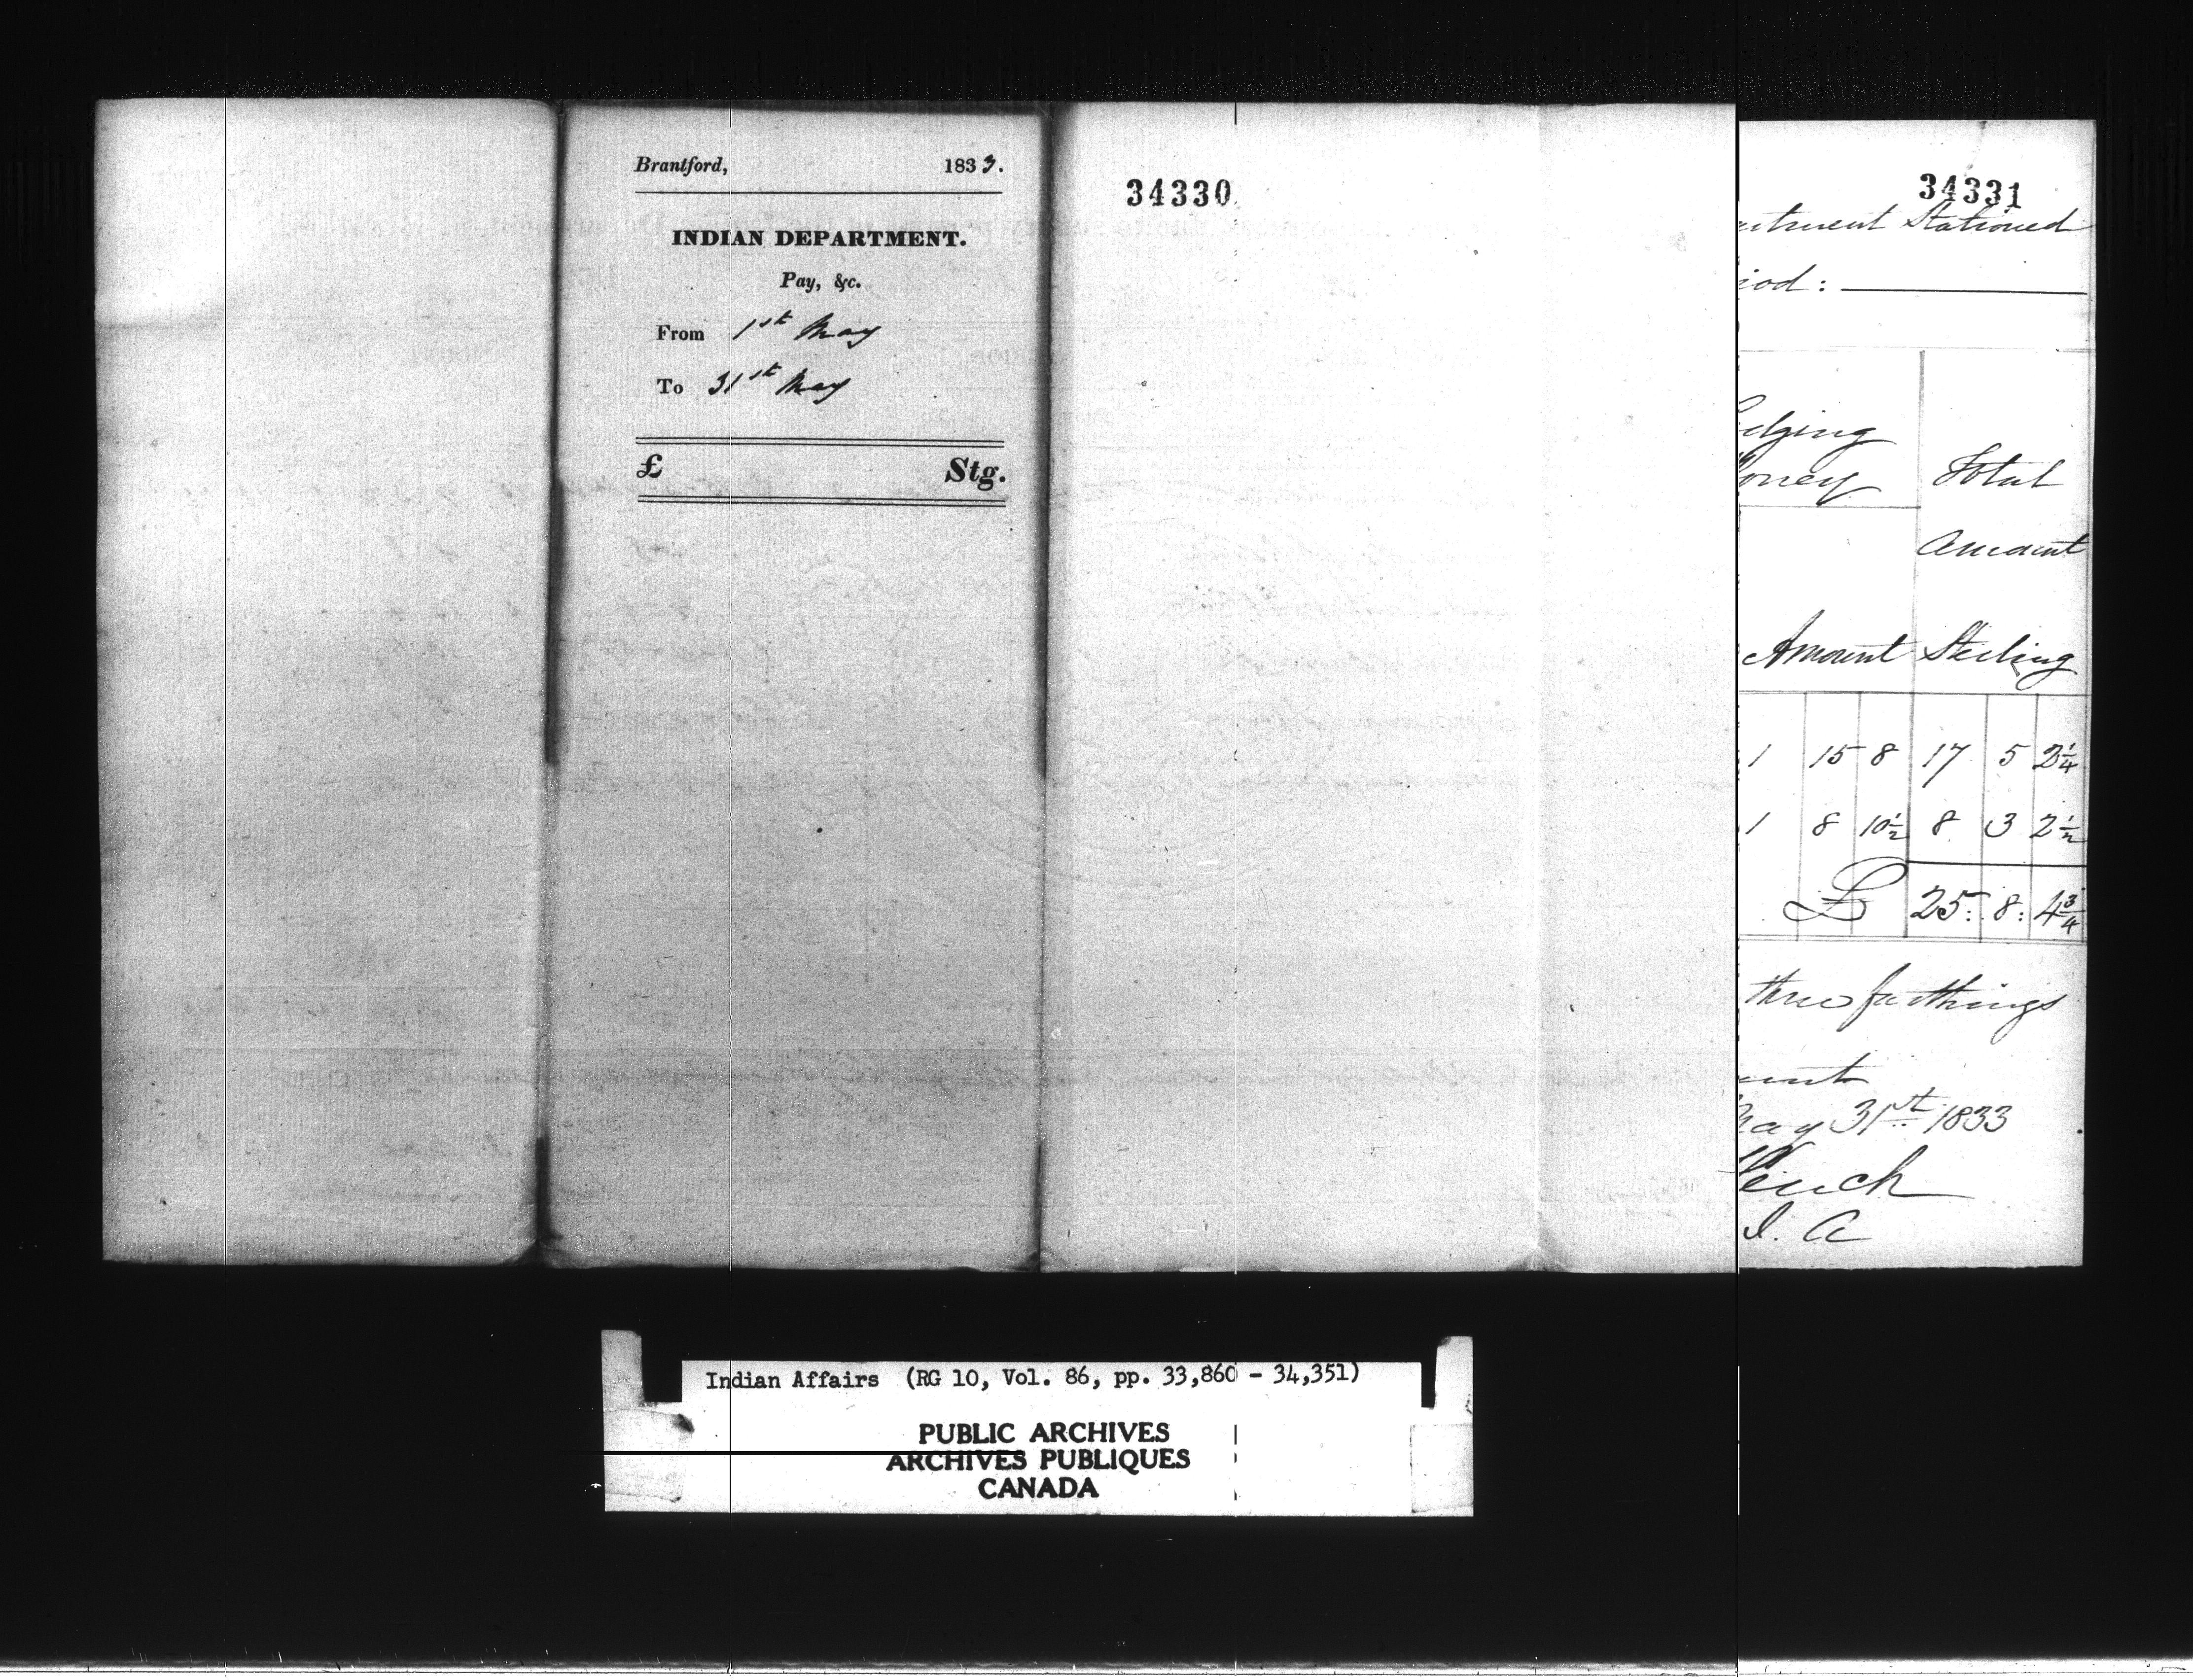 Brantford, 1833.
INDIAN DEPARTMENT.
Pay, &c.
From 1st May
To 31st May
£ Stg.
34330
34331
Stationed
iod:
Total
oney
Amount
Amount Sterling
1 15 8 17 5 2¼
1 8 10½ 8 3 2½
£ 25: 8: 4¾
three farthings
May 31st 1833
I. A
Indian Affairs (RG 10, Vol. 86, pp. 33,860 - 34,351)
PUBLIC ARCHIVES
ARCHIVES PUBLIQUES
CANADA